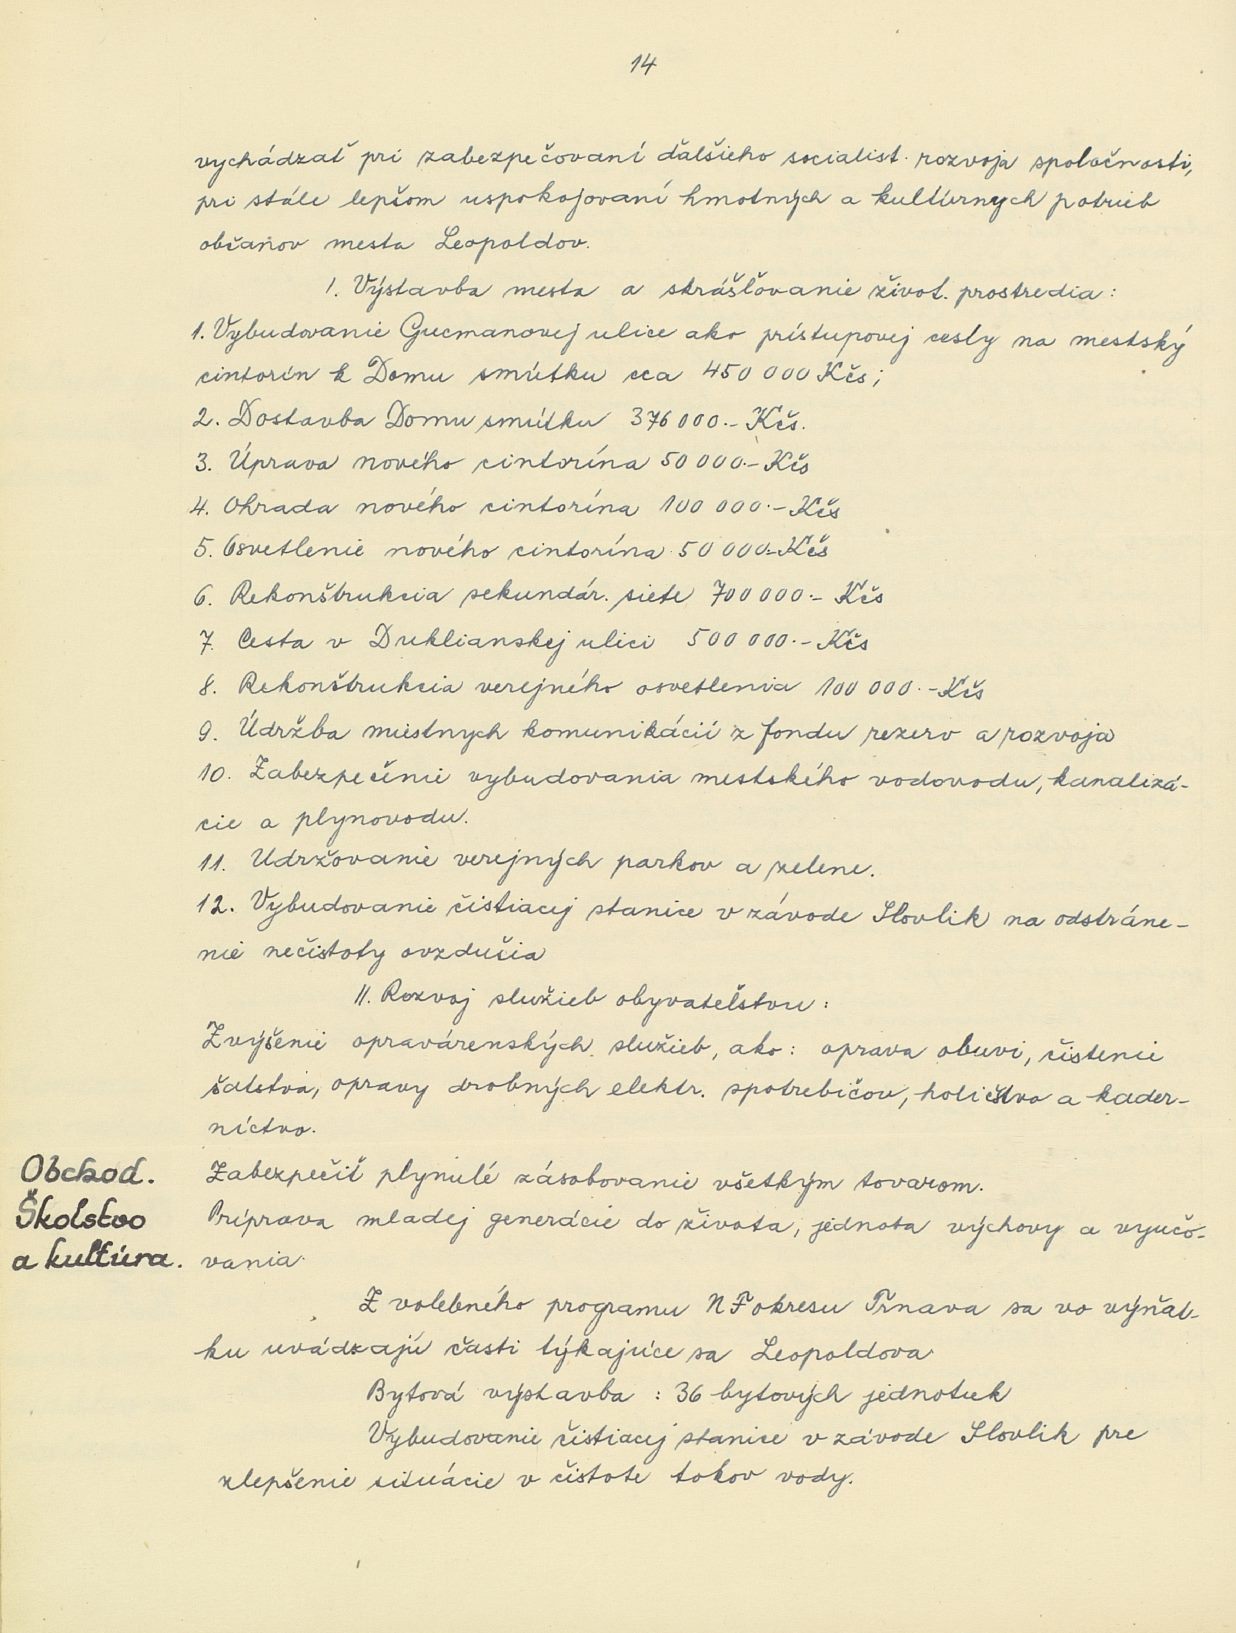 14
vychádzať pri zabezpečovaní ďalšieho socialist. rozvoja spoločnosti,
pri stále lepšom uspokojovaní hmotných a kultúrnych potrieb
občanov mesta Leopoldov.
I. Výstavba mesta a skrášľovanie život. prostredia:
1. Vybudovanie Gucmanovej ulice ako prístupovej cesty na mestský
cintorín k Domu smútku cca 450 000 Kčs;
2. Dostavba Domu smútku 376 000.- Kčs.
3. Úprava nového cintorína 50 000.- Kčs
4. Ohrada nového cintorína 100 000.- Kčs
5. Osvetlenie nového cintorína 50 000.- Kčs
6. Rekonštrukcia sekundár. siete 700 000.- Kčs
7. Cesta v Duklianskej ulici 500 000.- Kčs
8. Rekonštrukcia verejného osvetlenia 100 000.- Kčs
9. Údržba miestnych komunikácií z fondu rezerv a rozvoja
10. Zabezpečenie vybudovania mestského vodovodu, kanalizá-
cie a plynovodu.
11. Udržovanie verejných parkov a zelene.
12. Vybudovanie čistiacej stanice v závode Slovlik na odstráne-
nie nečistoty ovzdušia
II. Rozvoj služieb obyvateľstvu:
Zvýšenie opravárenských služieb, ako: oprava obuvi, čistenie
šatstva, opravy drobných elektr. spotrebičov, holičstvo a kader-
níctvo.
Obchod. Zabezpečiť plynulé zásobovanie všetkým tovarom.
Školstvo Príprava mladej generácie do života, jednota výchovy a vyučo-
a kultúra. vania.
Z volebného programu NF okresu Trnava sa vo výňat-
ku uvádzajú časti týkajúce sa Leopoldova.
Bytová výstavba: 36 bytových jednotiek
Vybudovanie čistiacej stanice v závode Slovlik pre
zlepšenie situácie v čistote tokov vody.